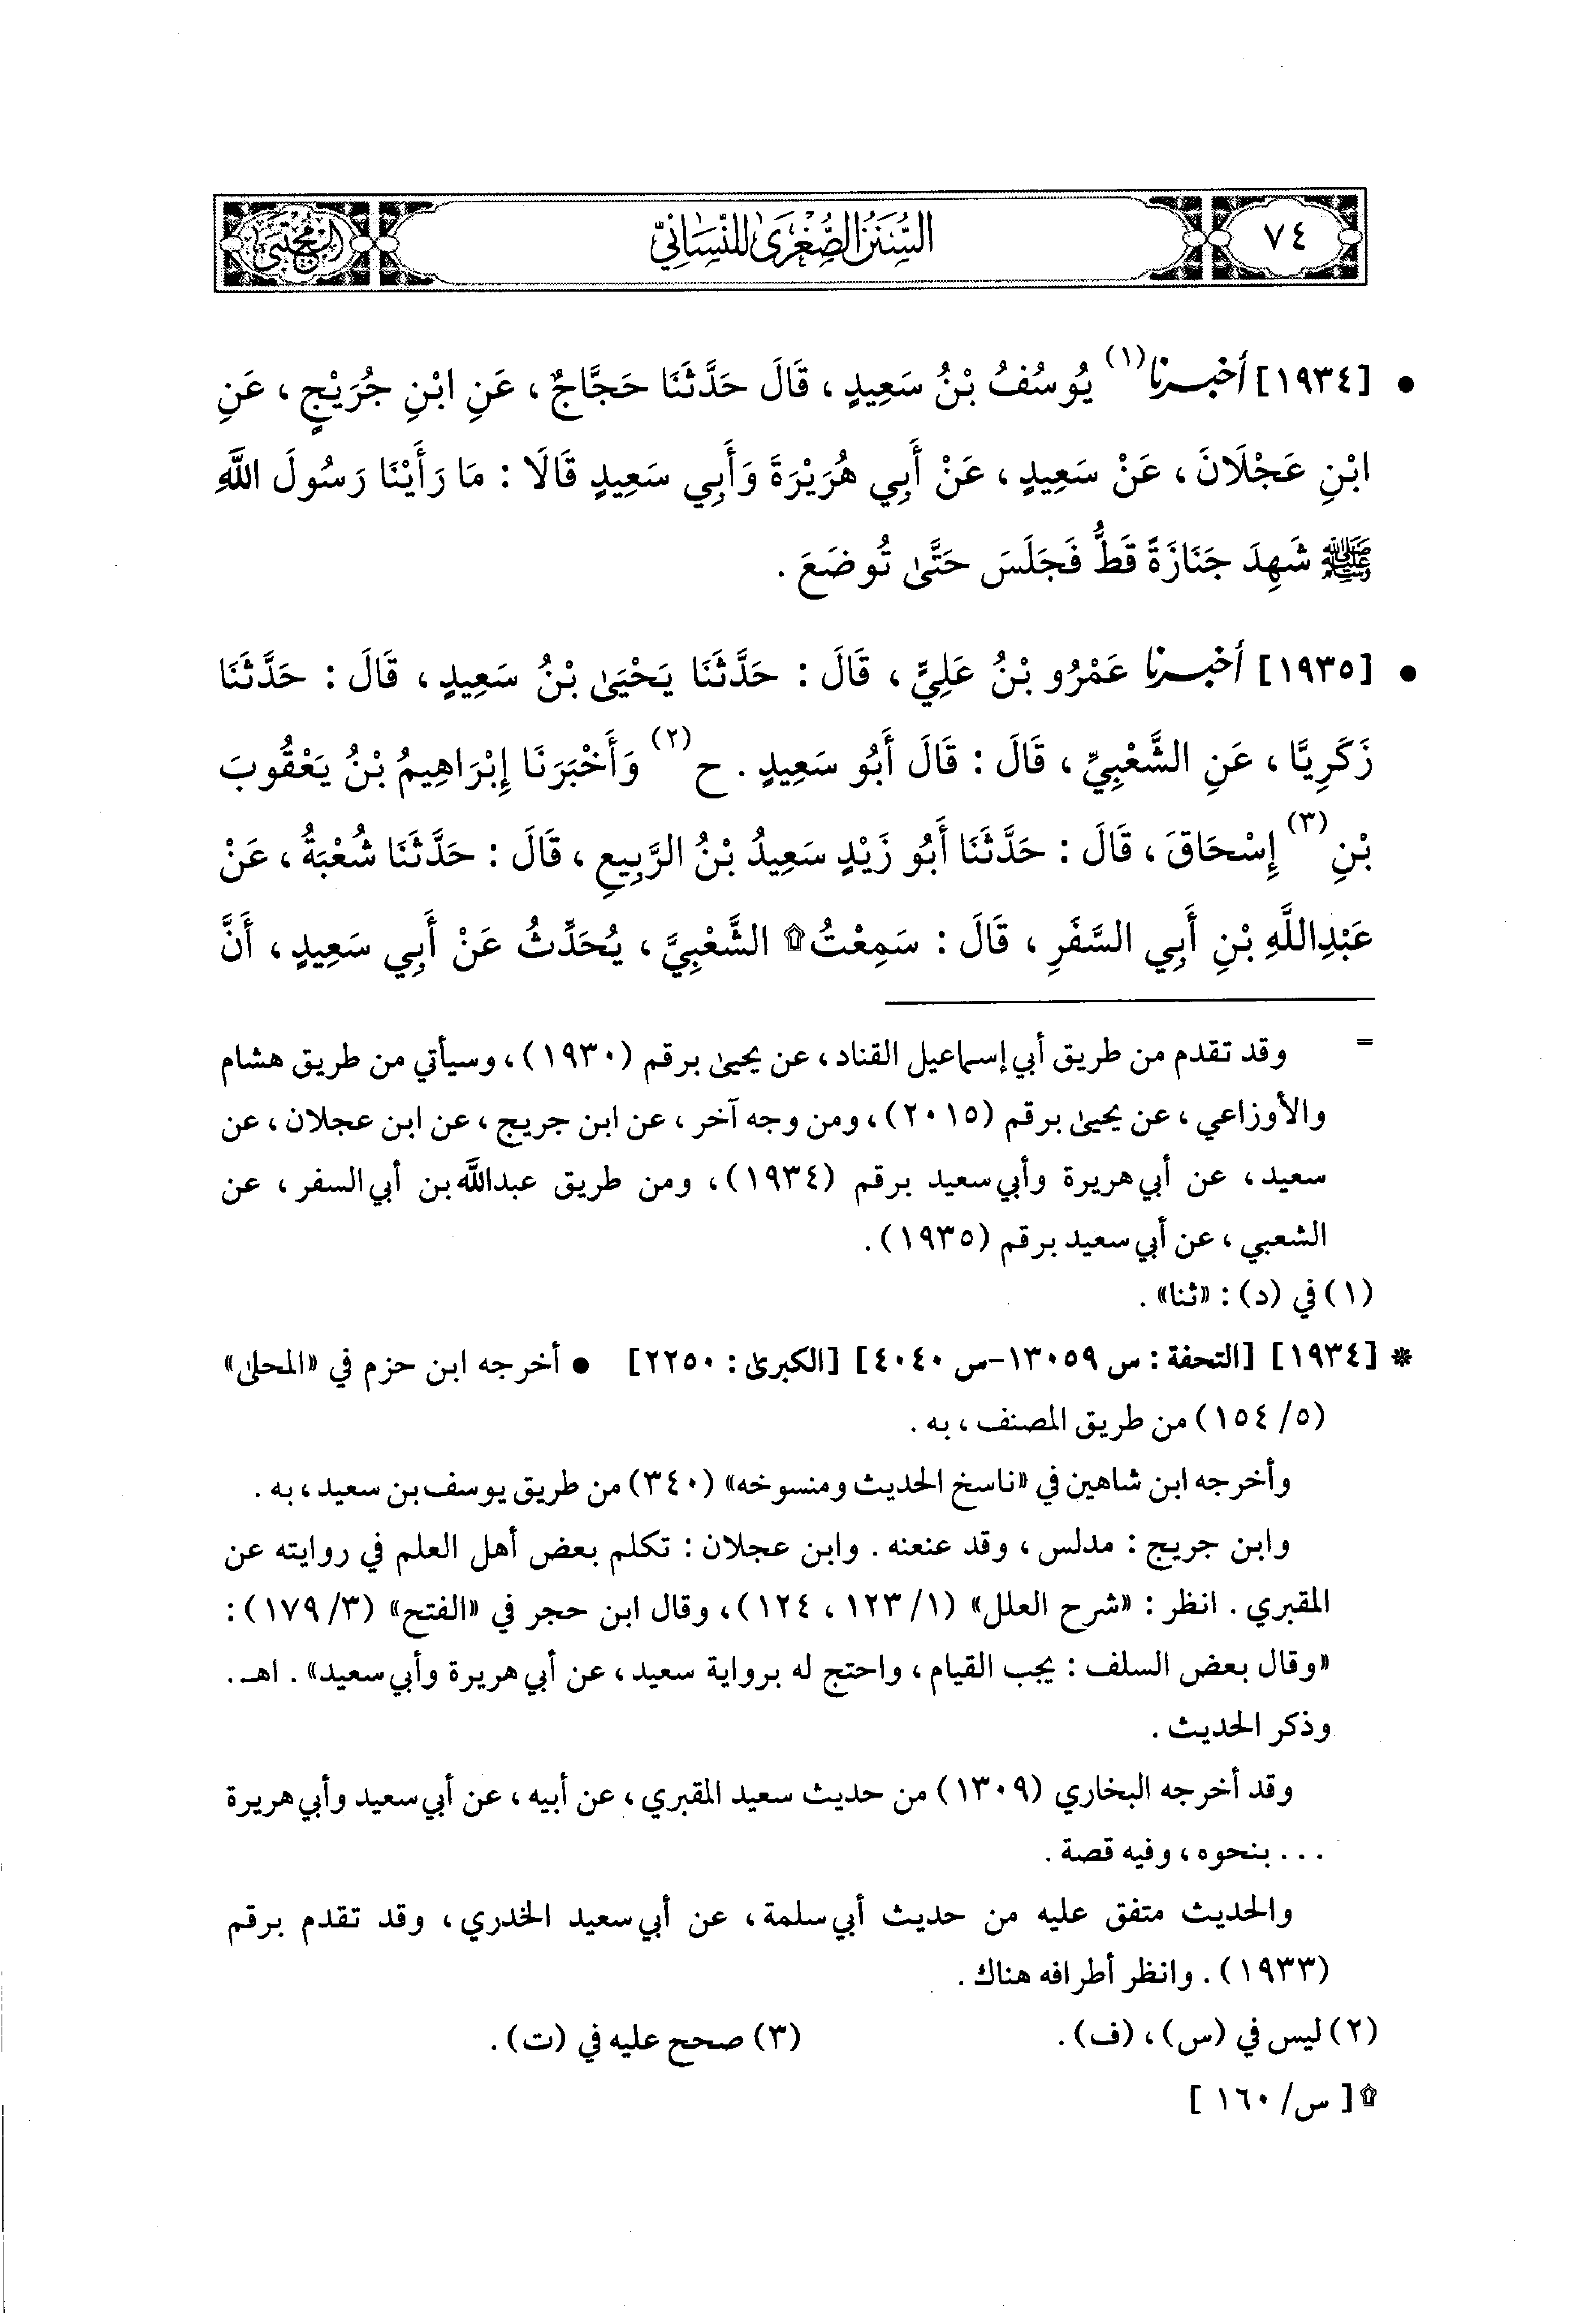 ٧٤
السُّنَنُ الصُّغْرَىٰ لِلنَّسَائِيِّ
المجتبى
• [١٩٣٤] أخبرنا(١) يُوسُفُ بْنُ سَعِيدٍ ، قَالَ حَدَّثَنَا حَجَّاجٌ ، عَنِ ابْنِ جُرَيْجٍ ، عَنِ
ابْنِ عَجْلَانَ ، عَنْ سَعِيدٍ ، عَنْ أَبِي هُرَيْرَةَ وَأَبِي سَعِيدٍ قَالَا : مَا رَأَيْنَا رَسُولَ اللَّهِ
ﷺ شَهِدَ جَنَازَةً قَطُّ فَجَلَسَ حَتَّىٰ تُوضَعَ .
• [١٩٣٥] أخبرنا عَمْرُو بْنُ عَلِيٍّ ، قَالَ : حَدَّثَنَا يَحْيَىٰ بْنُ سَعِيدٍ ، قَالَ : حَدَّثَنَا
زَكَرِيَّا ، عَنِ الشَّعْبِيِّ ، قَالَ : قَالَ أَبُو سَعِيدٍ . ح(٢) وَأَخْبَرَنَا إِبْرَاهِيمُ بْنُ يَعْقُوبَ
بْنِ(٣) إِسْحَاقَ ، قَالَ : حَدَّثَنَا أَبُو زَيْدٍ سَعِيدُ بْنُ الرَّبِيعِ ، قَالَ : حَدَّثَنَا شُعْبَةُ ، عَنْ
عَبْدِاللَّهِ بْنِ أَبِي السَّفَرِ ، قَالَ : سَمِعْتُ۩ الشَّعْبِيَّ ، يُحَدِّثُ عَنْ أَبِي سَعِيدٍ ، أَنَّ
= وقد تقدم من طريق أبي إسماعيل القناد ، عن يحيىٰ برقم (١٩٣٠) ، وسيأتي من طريق هشام
والأوزاعي ، عن يحيىٰ برقم (٢٠١٥) ، ومن وجه آخر ، عن ابن جريج ، عن ابن عجلان ، عن
سعيد ، عن أبي هريرة وأبي سعيد برقم (١٩٣٤) ، ومن طريق عبداللَّه بن أبي السفر ، عن
الشعبي ، عن أبي سعيد برقم (١٩٣٥) .
(١) في (د) : «ثنا» .
* [١٩٣٤] [التحفة : س ١٣٠٥٩-س ٤٠٤٠] [الكبرىٰ : ٢٢٥٠] • أخرجه ابن حزم في «المحلىٰ»
(٥/ ١٥٤) من طريق المصنف ، به .
وأخرجه ابن شاهين في «ناسخ الحديث ومنسوخه» (٣٤٠) من طريق يوسف بن سعيد ، به .
وابن جريج : مدلس ، وقد عنعنه . وابن عجلان : تكلم بعض أهل العلم في روايته عن
المقبري . انظر : «شرح العلل» (١/ ١٢٣ ، ١٢٤) ، وقال ابن حجر في «الفتح» (٣/ ١٧٩) :
«وقال بعض السلف : يجب القيام ، واحتج له برواية سعيد ، عن أبي هريرة وأبي سعيد» . اهـ .
وذكر الحديث .
وقد أخرجه البخاري (١٣٠٩) من حديث سعيد المقبري ، عن أبيه ، عن أبي سعيد وأبي هريرة
... بنحوه ، وفيه قصة .
والحديث متفق عليه من حديث أبي سلمة ، عن أبي سعيد الخدري ، وقد تقدم برقم
(١٩٣٣) . وانظر أطرافه هناك .
(٢) ليس في (س) ، (ف) . (٣) صحح عليه في (ت) .
۩[ س/ ١٦٠ ]